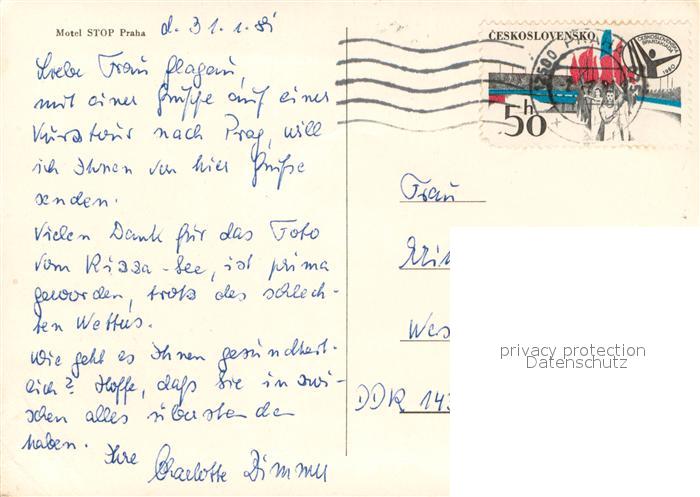 Motel STOP Praha
d. 31.1.81
Liebe Frau Glagau,
mit einer Gruppe auf einer
Kurztour nach Prag, will
ich Ihnen von hier Grüße
senden.
Vielen Dank für das Foto
vom Rizza-See, ist prima
geworden, trotz des schlech-
ten Wetters.
Wie geht es Ihnen gesundheit-
lich? Hoffe, daß Sie inzwi-
schen alles überstanden
haben.
Ihre
Charlotte Dimmer
ČESKOSLOVENSKO
ČESKOSLOVENSKÁ
SPARTAKIÁDA
1980
50 h
PRAHA
Frau
Wes
DDR 143
privacy protection
Datenschutz